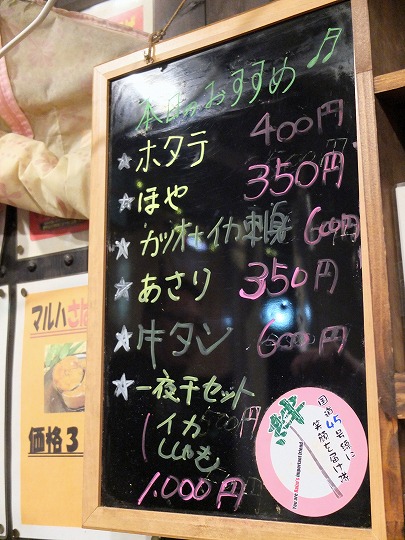 本日のおすすめ♪
☆ホタテ 400円
☆ほや 350円
☆カツオ+イカ刺身 600円
☆あさり 350円
☆牛タン 600円
☆一夜干セット
イカ
ししゃも
1.000円
絆
国道45号線に
笑顔を届け隊
マルハさば
価格3